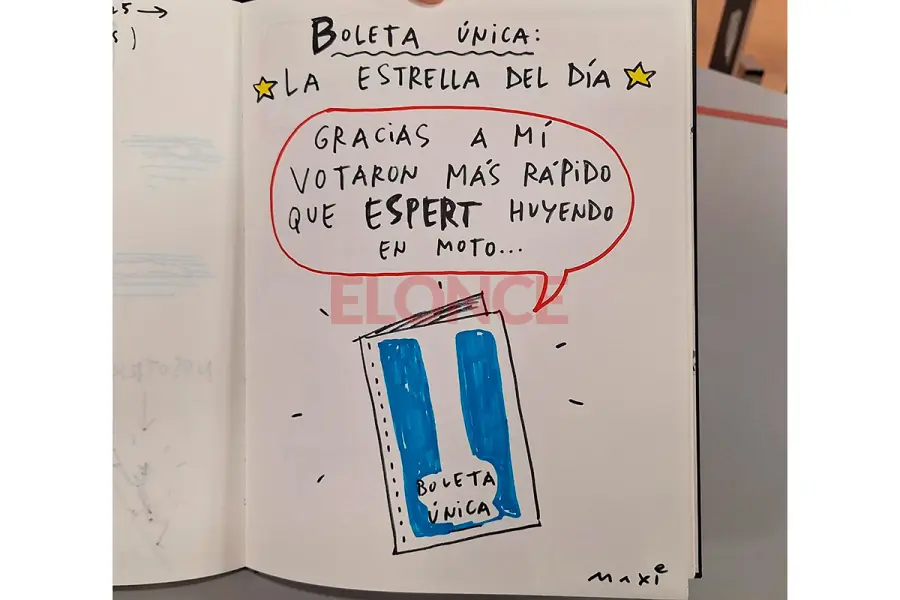 25 →
BOLETA ÚNICA:
LA ESTRELLA DEL DÍA
GRACIAS A MÍ
VOTARON MÁS RÁPIDO
QUE ESPERT HUYENDO
EN MOTO...
ELONCE
BOLETA
ÚNICA
MAXI